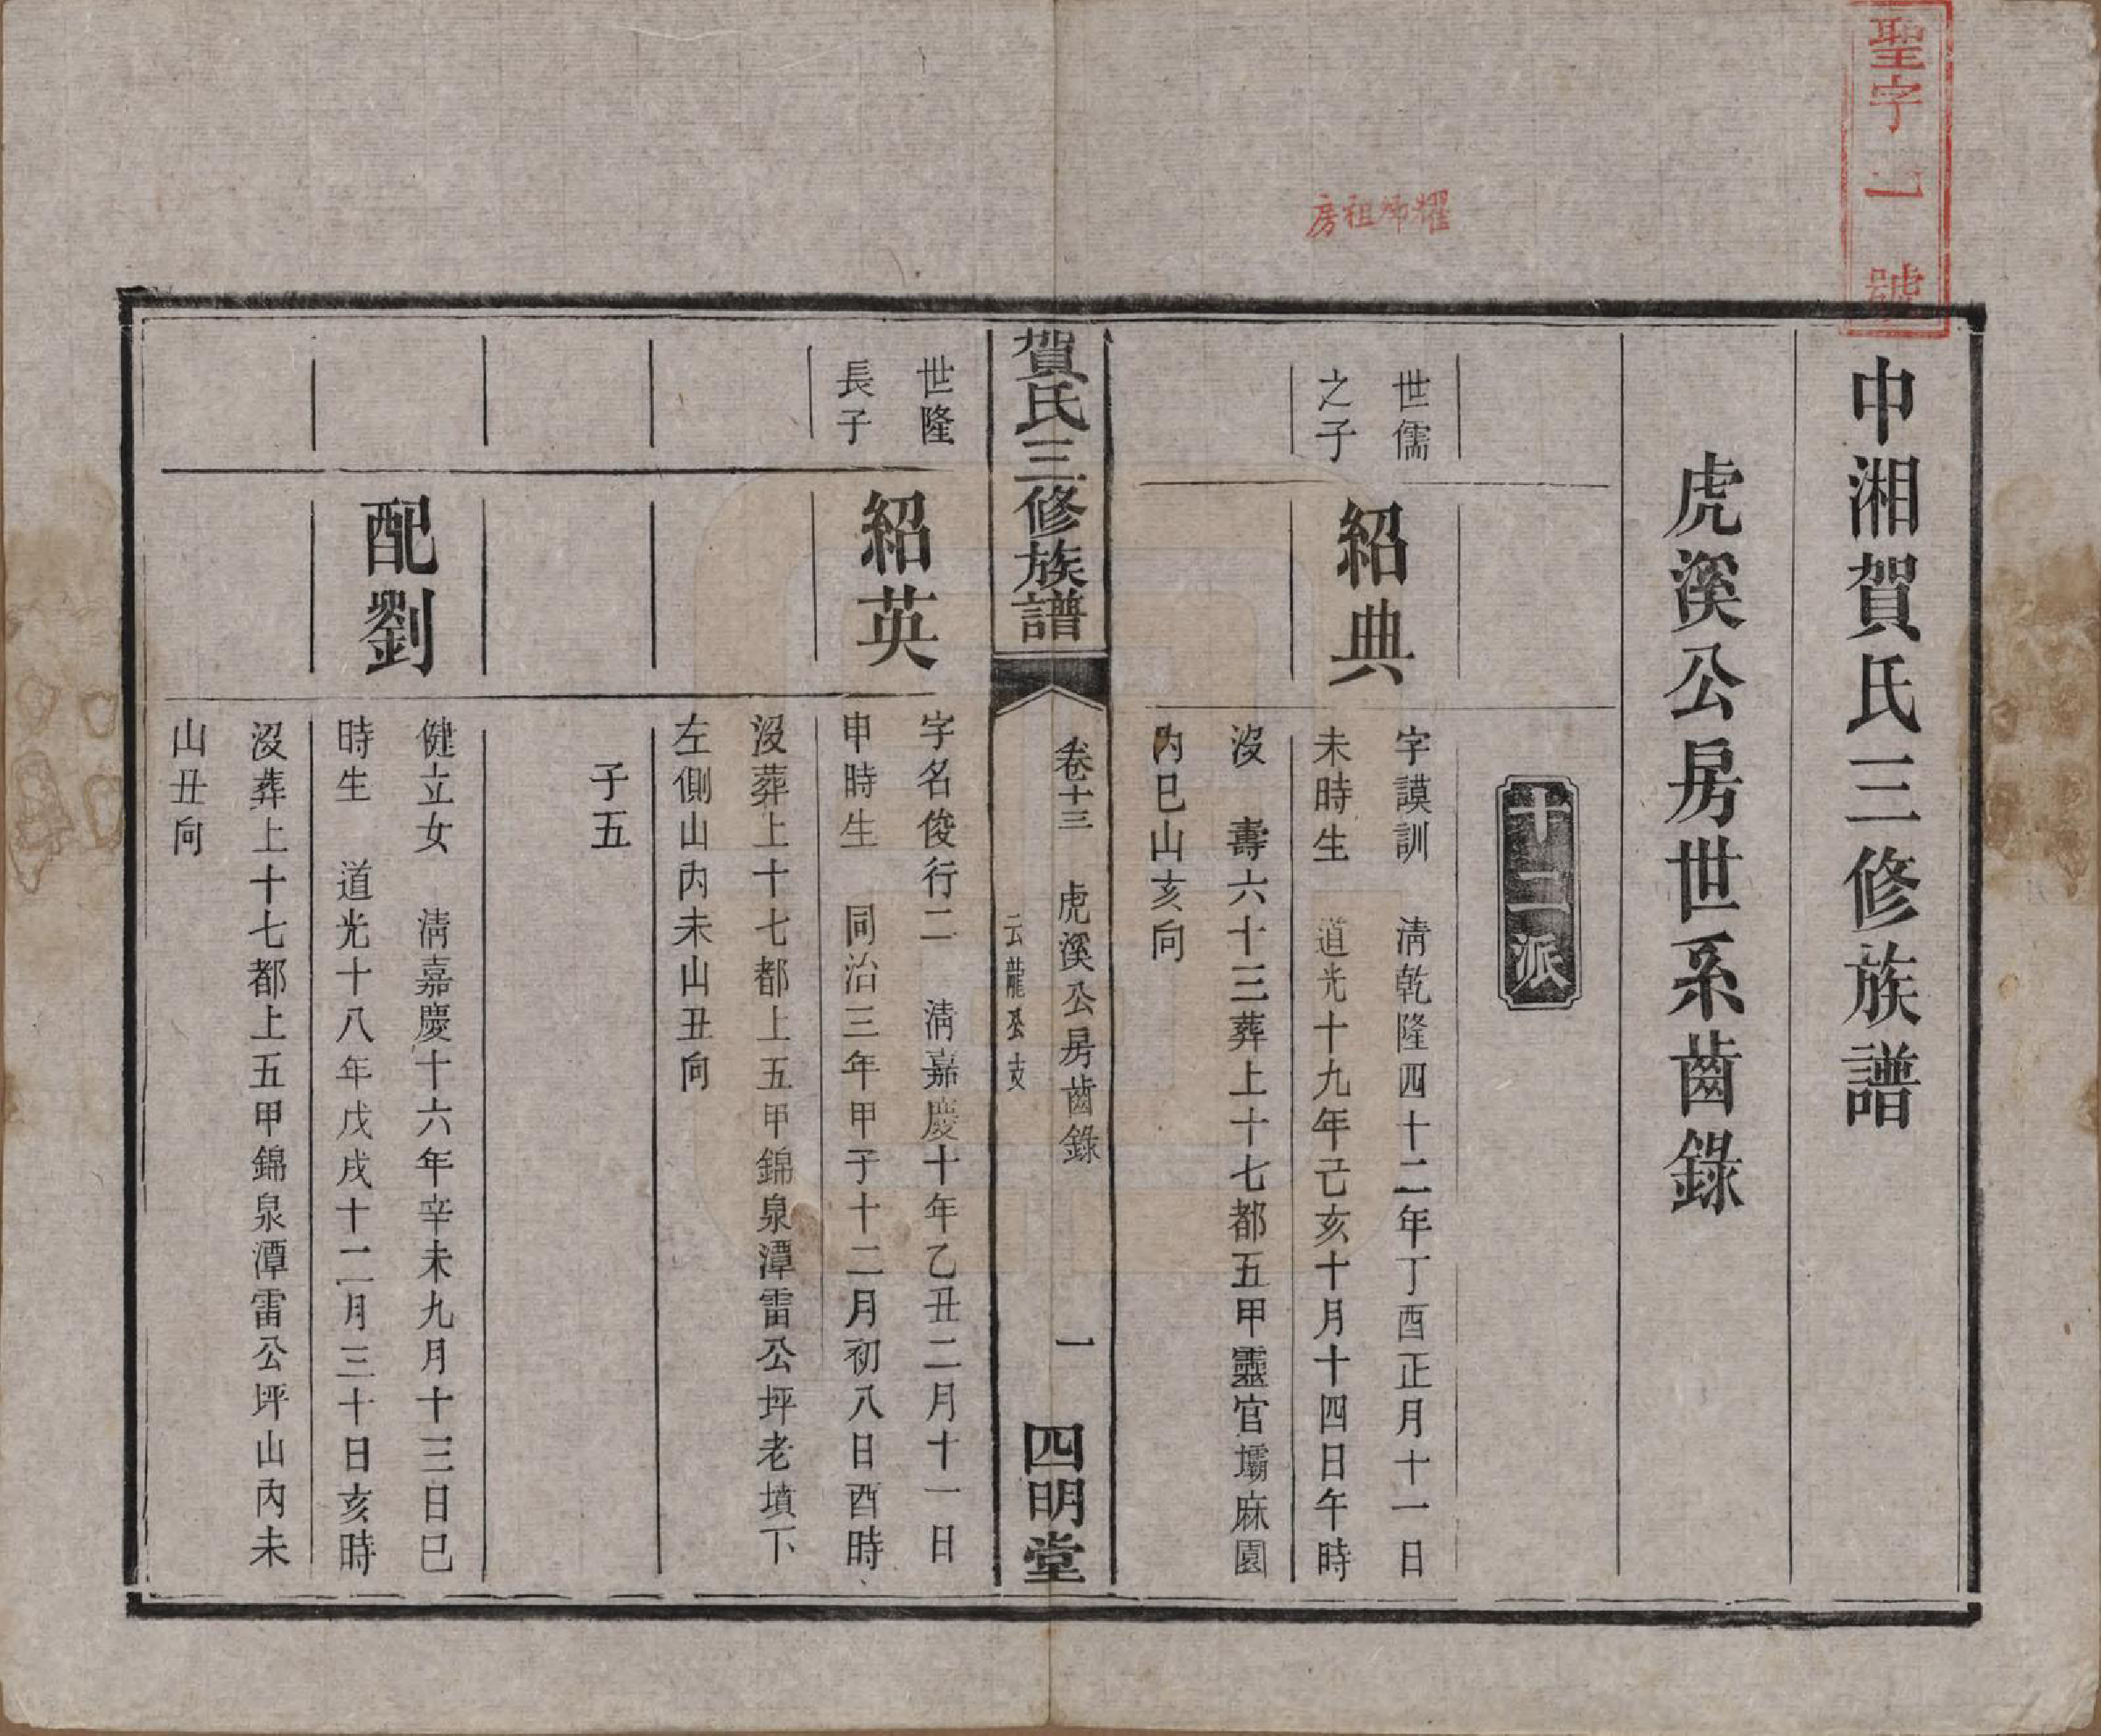 聖字一號
房祖帰耀
中湘賀氏三修族譜
虎溪公房世系齒錄
十二派
世儒
之子
紹典
字謨訓 清乾隆四十二年丁酉正月十一日
未時生 道光十九年己亥十月十四日午時
沒 壽六十三葬上十七都五甲靈官壩麻園
內巳山亥向
賀氏三修族譜
卷十三 虎溪公房齒錄 一
云龍公支
四明堂
世隆
長子
紹英
字名俊行二 清嘉慶十年乙丑二月十一日
申時生 同治三年甲子十二月初八日酉時
沒葬上十七都上五甲錦泉潭雷公坪老墳下
左側山內未山丑向
子五
配劉
健立女 清嘉慶十六年辛未九月十三日巳
時生 道光十八年戊戌十二月三十日亥時
沒葬上十七都上五甲錦泉潭雷公坪山內未
山丑向